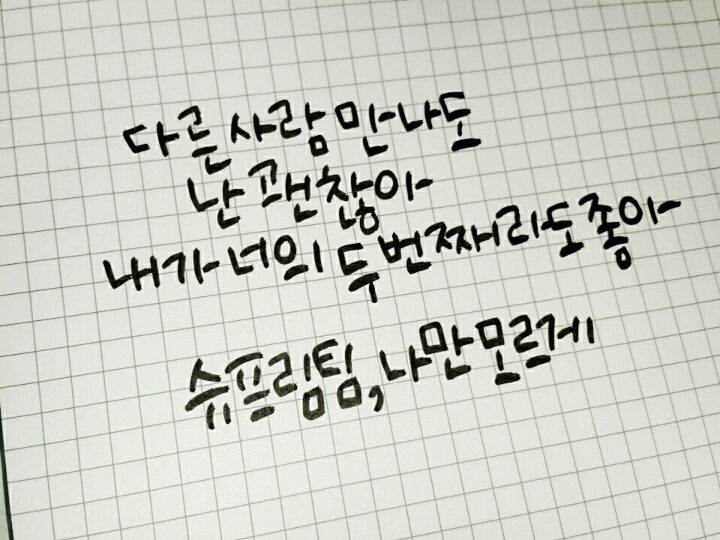 다른 사람 만나도
난 괜찮아
내가 너의 두 번째라도 좋아
슈프림팀, 나만 모르게